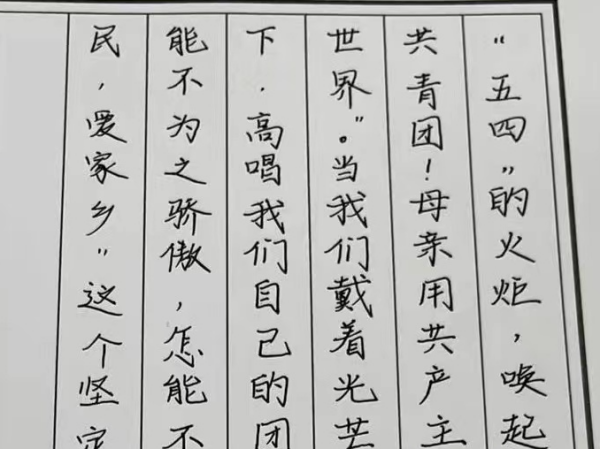 “五四”的火炬，唤起
共青团！母亲用共产主
世界”。当我们戴着光芒
下．高唱我们自己的团
能不为之骄傲，怎能不
民，爱家乡”这个坚定